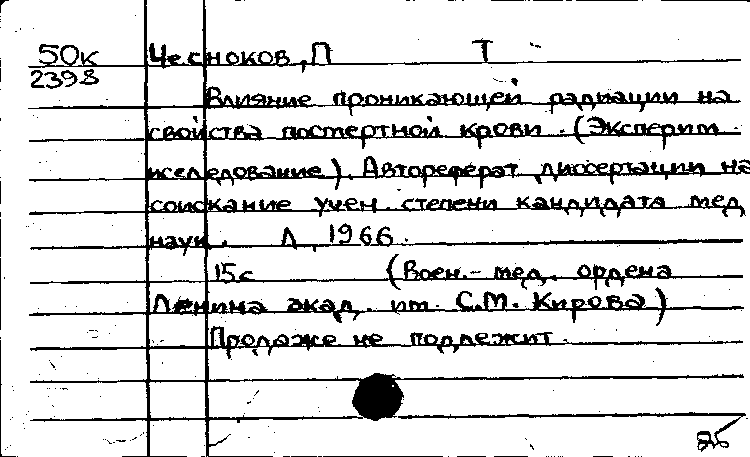 50к Чесноков, П Т
2398
Влияние проникающей радиации на
свойства постертной крови. (Эксперим.
исследование). Автореферат диссертации на
соискание учен. степени кандидата мед
наук. Л, 1966.
15с (Воен.-мед. ордена
Ленина акад. им. С.М. Кирова)
Продаже не подлежит.